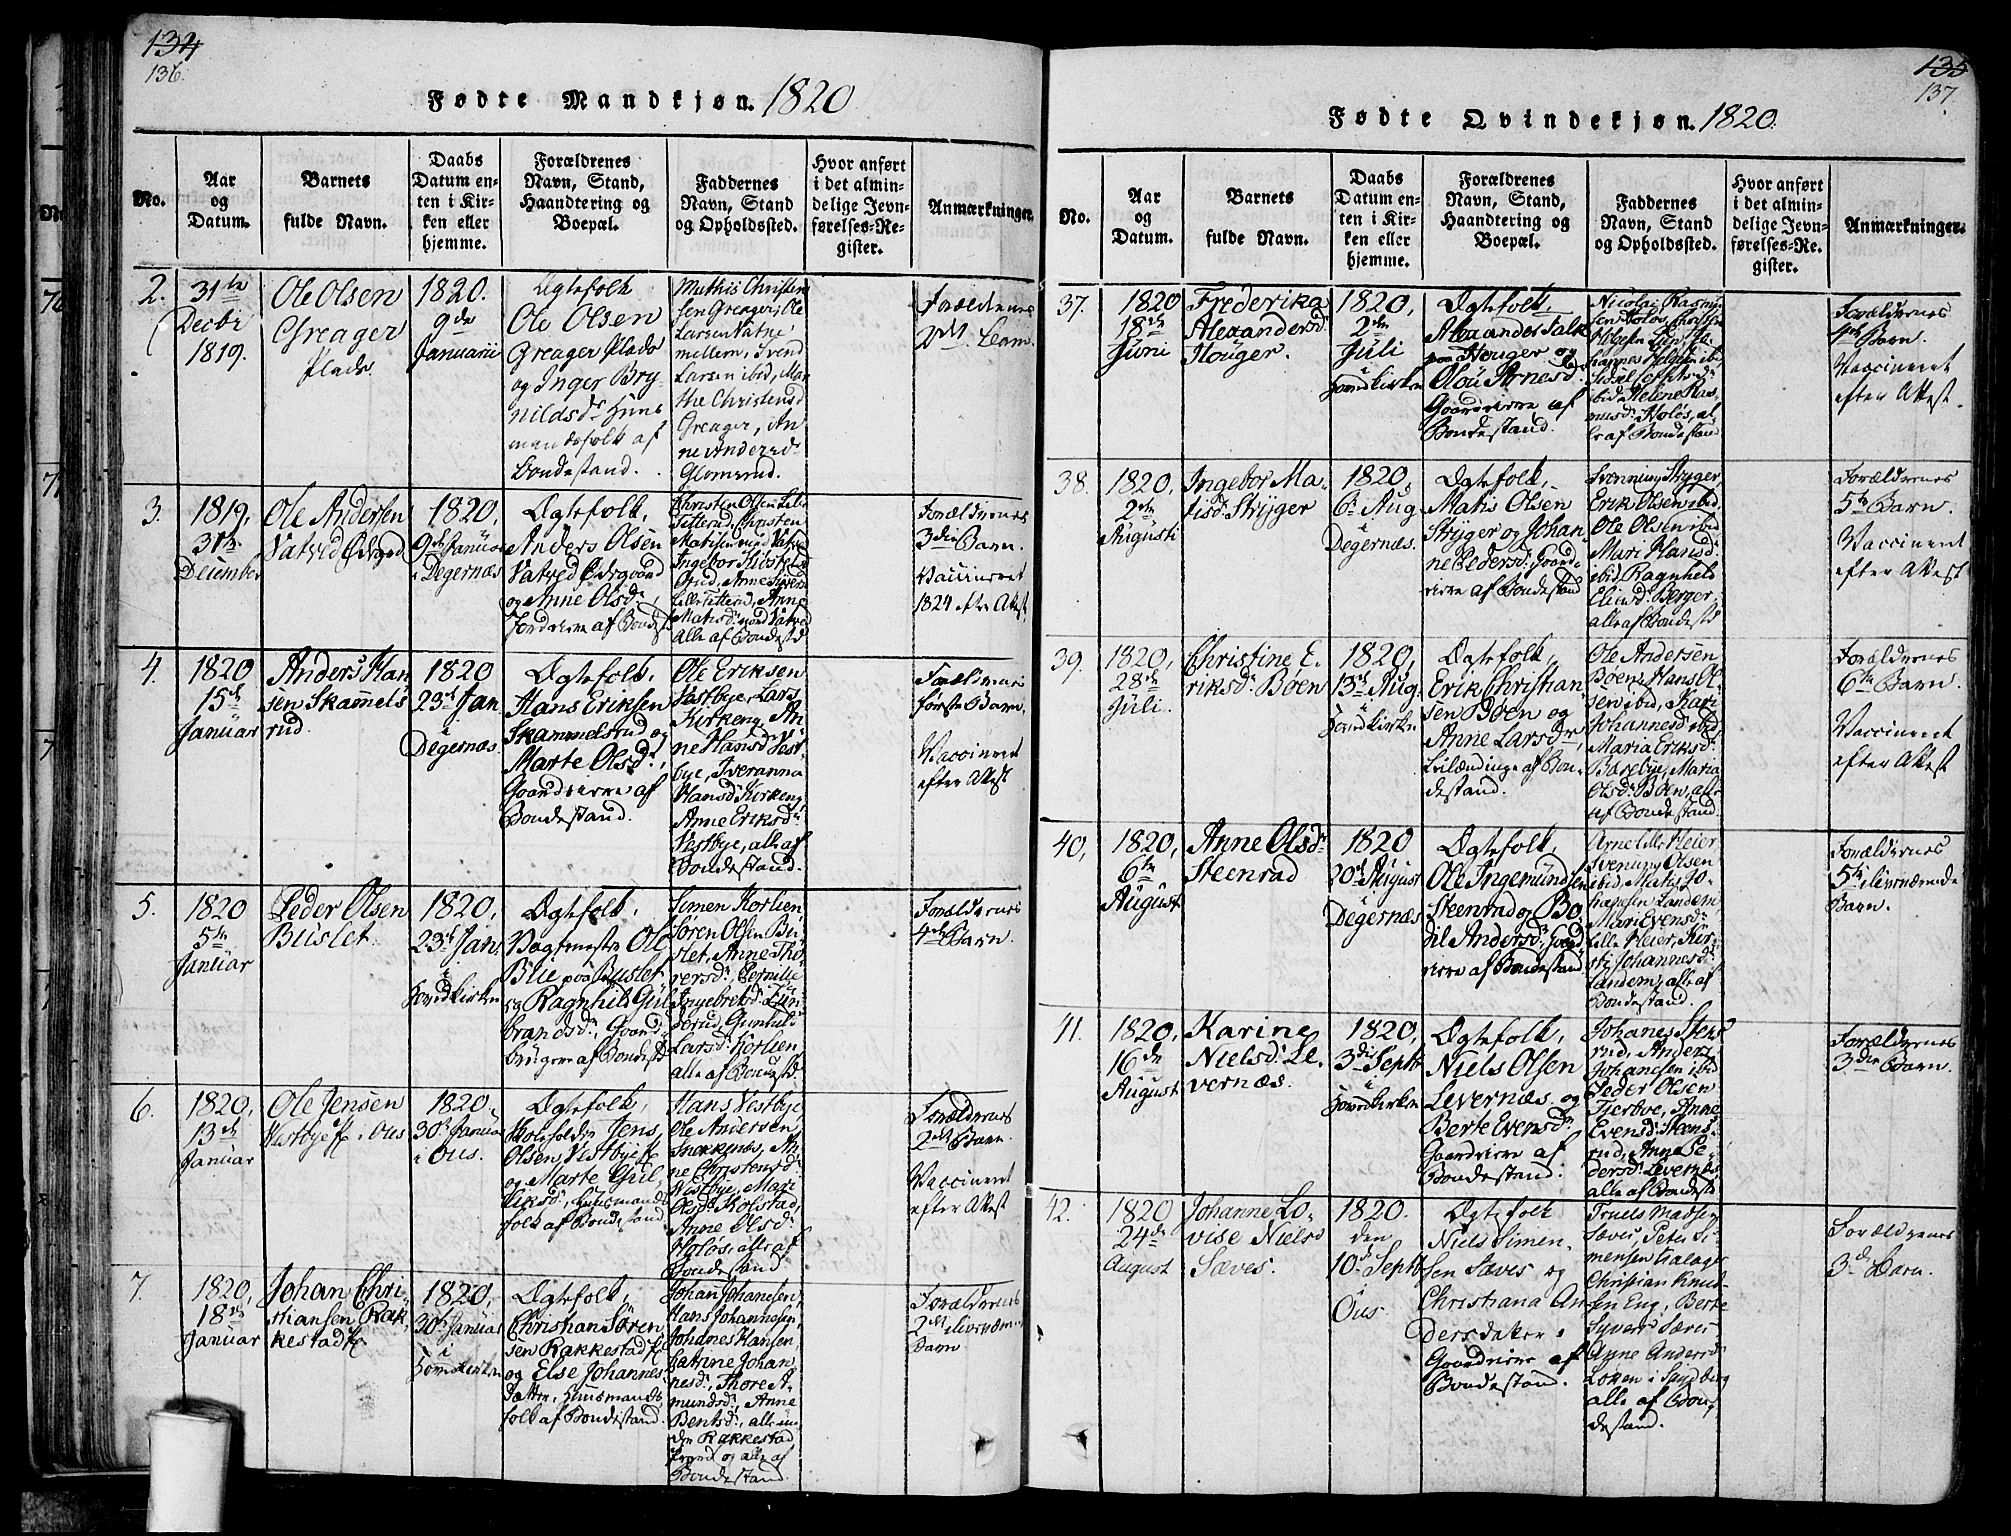 134
136.
Fødte Mandkjøn. 1820
No.
Aar
og
Datum.
Barnets
fulde Navn.
Daabs
Datum en-
ten i Kir-
ken eller
hjemme.
Forældrenes
Navn, Stand,
Haandtering og
Boepæl.
Faddernes
Navn, Stand
og Opholdssted.
Hvor anført
i det almin-
delige Jevn-
førelses-Re-
gister.
Anmærkninger.
2.
31te
Decbr
1819.
Ole Olsen
Greager
Plads.
1820.
9de
Januarii
Ægtefolk
Ole Olsen
Greager Plads
og Inger Bry-
nildsdr Huus
mandsfolk af
Bondestand.
Mathis Christen
sen Greager, Ole
Larsen Vatne
mellem, Svend
Larsen ibid, Mar
the Christensd
Greager, An
ne Andersd
Glomsrud.
Forældrenes
2det
3.
1819,
31te
December
Ole Andersen
Vatved Ødegaard
1820,
9de Januar
i Degernæs
Ægtefolk,
Anders Olsen
Vatved Ødegaard
og Anne Olsdr,
af Bondest
Christen Olsen Lille
Tetterud, Christen
Matisen Vatved
Ingebor
Anne Svend
Lille Tetterud, Anne
Matisdr Vatved
alle af Bondestd
Forældrenes
3die Barn.
Vaccineret
1824 efter Attest.
4.
1820
15de
Januar
Anders Han
sen Skammels
rud.
1820
23de Jan
i
Degernæs.
Ægtefolk,
Hans Eriksen
Skammelsrud og
Marte Olsdr,
Gaardeiere af
Bondestand.
Ole Eriksen
Vestbye, Lars
Kirkeng, An
ne Hansdr Vest
bye, Iveranna
Hansdr Kirkeng
Anne Eriksdr
Vestbye, alle af
Bondestand.
Forældrenes
første Barn.
Vaccineret
efter Attest
5.
1820
5te
Januar
Peder Olsen
Buslet.
1820,
23de Jan.
i
Hovedkirken
Ægtefolk,
Vagtmester Ole
Blie paa Buslet
og Ragnhild Gul
brandsdr, Gaard-
brugere af Bondestd
Simen Korlien
Søren Olsen Bu
slet, Anne Tho
resdr, Pernille
Ingebretsdr
Gunhild
Larsdr Korlien
alle af Bondestd.
Forældrenes
4de Barn.
6.
1820,
13de
Januar
Ole Jensen
Vestbye i Ous
1820,
30te Januar
i Ous.
Ægtefolk,
Jens
Olsen, Vestbye
og Marte Gul,
liksdr, Huusmands
folk af Bondestand
Hans Vestbye
Ole Andersen
Snekkenæs, An
ne Christensd
Vestbye, Mari
Olsd Kolstad,
Anne Olsdr
Holøs, alle af
Bondestand
Forældrenes
2det Barn.
Vaccineret
efter Attest
7.
1820,
18de
Januar
Johan Chri-
stiansen Rak,
kestad
1820,
30te Januar
i
Hovedkirken
Ægtefolk,
Christian Søren
sen Rakkestad
og Else Johannes
Datter, Huusmands
folk af Bondestand.
Johan Johannesen,
Hans Johannesen,
Johannes Hansen,
Catrine Johan
nesdr, Thore A-
mundsdr, Anne
Bentsdr, alle un
der Rakkestad
og alle af
Bondestand.
Forældrenes
2det levende
Barn.
135
137.
Fødte Qvindekjøn. 1820.
No.
Aar
og
Datum.
Barnets
fulde Navn.
Daabs
Datum en-
ten i Kir-
ken eller
hjemme.
Forældrenes
Navn, Stand,
Haandtering og
Boepæl.
Faddernes
Navn, Stand
og Opholdssted.
Hvor anført
i det almin-
delige Jevn-
førelses-Re-
gister.
Anmærkninger.
37.
1820
18de
Juni
Frederika
Alexandersd
Houger.
1820,
2den
Juli
i
Hovedkirken
Ægtefolk
Alexander Falk
paa Houger og
Olou Arnesdr
Gaardeiere af
Bondestand.
Nicolai Rasmus
sen Holøs, Christen
Helgesen Lund, Jo
hannes Helgesen ibid
Sidsel
ibid, Helene Ras
musdr Holøs, al
le af Bondestand
Forældrenes
4de Barn.
Vaccineret
efter Attest.
38.
1820,
2den
Augusti
Ingebor Ma-
tisdr Stryger
1820,
6te Aug
i
Degernæs.
Ægtefolk,
Matis Olsen
Stryger og Johan
ne Pedersdr, Gaard-
eiere af Bondestand
Svenning Stryger,
Erik Olsen ibid,
Ole Olsen ibid
Mari Hansdr
ibid, Ragnhild
Eliasdr Berger,
alle af Bondestd
Forældrenes
5te Barn.
Vaccineret
efter Attest
39.
1820,
28de
Juli.
Christine E-
riksdr Bøen
1820,
13de Aug.
i
Hovedkirken
Ægtefolk,
Erik Christian
sen Bøen og
Anne Larsdr,
af Bon-
destand.
Ole Andersen
Bøen, Hans Ol
sen ibid, Kari
Johannesdr ibid
Maria Eriksdr
Bærbye, Maria
Olsdr Bøen, alle
af Bondestand
Forældrenes
6te Barn.
Vaccineret
efter Attest
40,
1820,
6te
August
Anne Olsdr
Steenrad
1820
20de August
i
Degernæs
Ægtefolk,
Ole Ingemundsen
Steenrad og Bo
dil Andersdr, Gaard
eiere af Bondestand
Arne Lille Heier
Svenung Olsen
ibid, Matis Jo-
hannesen Landem,
Mari Evensdr
Lille Heier, Kir-
sti Johannesdr
Landem, alle af
Bondestand.
Forældrenes
5te levende
Barn.
41.
1820,
16de
August
Karine
Nielsdr Le
vernæs.
1820,
3die Septb
i
Hovedkirken
Ægtefolk,
Niels Olsen
Levernæs og
Berte Evensdr
Gaardeiere af
Bondestand.
Johanes Steens
rud, Anders
Johanesen ibid
Peder Olsen
Tjerboe, Anne
Evensdr Steens
rud, Anne Pe
dersdr Levernæs
alle af Bondestd
Forældrenes
3die Barn.
42.
1820
24de
August
Johanne Lo-
vise Nielsd
Sæves.
1820.
den
10de Septb
i
Ous.
Ægtefolk
Niels Simen-
sen Sæves og
Christiana An
ders datter.
Gaardeiere af
Bondestand.
Truels Madsen
Sæves, Peter Si
mensen
Christian Knud
sen Eng, Berte
Syvers Sæves
Anne Andersd
Løken i Spydberg
alle af Bon,
destand.
Forældrenes
3de Barn.